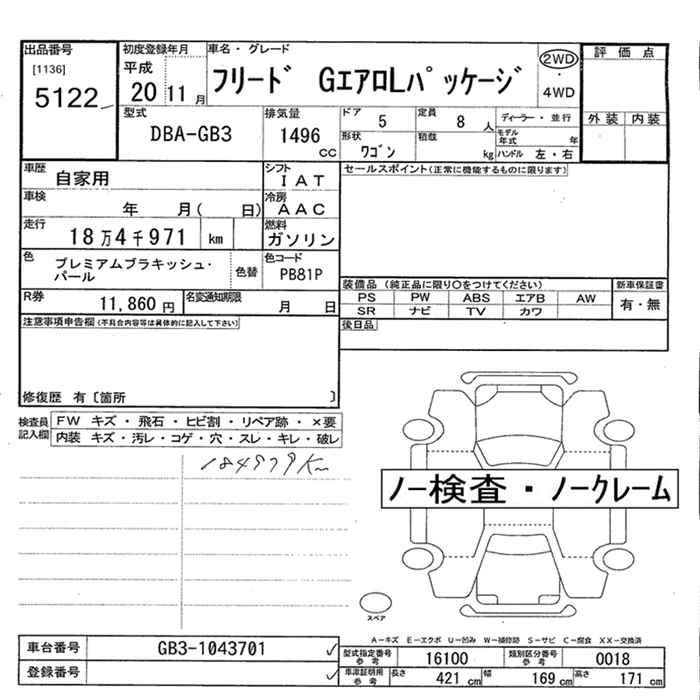 出品番号
[1136]
5122
初度登録年月
平成
20 11 月
車名・グレード
フリード GエアロLパッケージ
2WD
・
4WD
評価点
外装 内装
型式
DBA-GB3
排気量
1496
CC
ドア
5
定員
8 人
形状
ワゴン
積載
kg
ディーラー・並行
モデル
年式
年
ハンドル 左・右
車歴
自家用
シフト
IAT
車検
年 月( 日)
冷房
AAC
走行
18万4千971 km
燃料
ガソリン
色
プレミアムブラキッシュ・
パール
色替
色コード
PB81P
R券
11,860 円
名変通知期限
月 日
セールスポイント(正常に機能するものに限ります)
装備品 (純正品に限り○をつけてください)
PS PW ABS エアB AW
SR ナビ TV カワ
新車保証書
有・無
後日品
注意事項申告欄(不具合内容等は具体的に記入して下さい)
修復歴 有〔箇所 〕
検査員
記入欄
FW キズ・飛石・ヒビ割・リペア跡・×要
内装 キズ・汚レ・コゲ・穴・スレ・キレ・破レ
184979Km
ノー検査・ノークレーム
スペア
A-キズ E-エクボ U-凹み W-補修跡 S-サビ C-腐食 XX-交換済
車台番号
GB3-1043701
登録番号
型式指定番号
参考
16100
類別区分番号
参考
0018
車庫証明用
参考
長さ
421 cm
幅
169 cm
高さ
171 cm